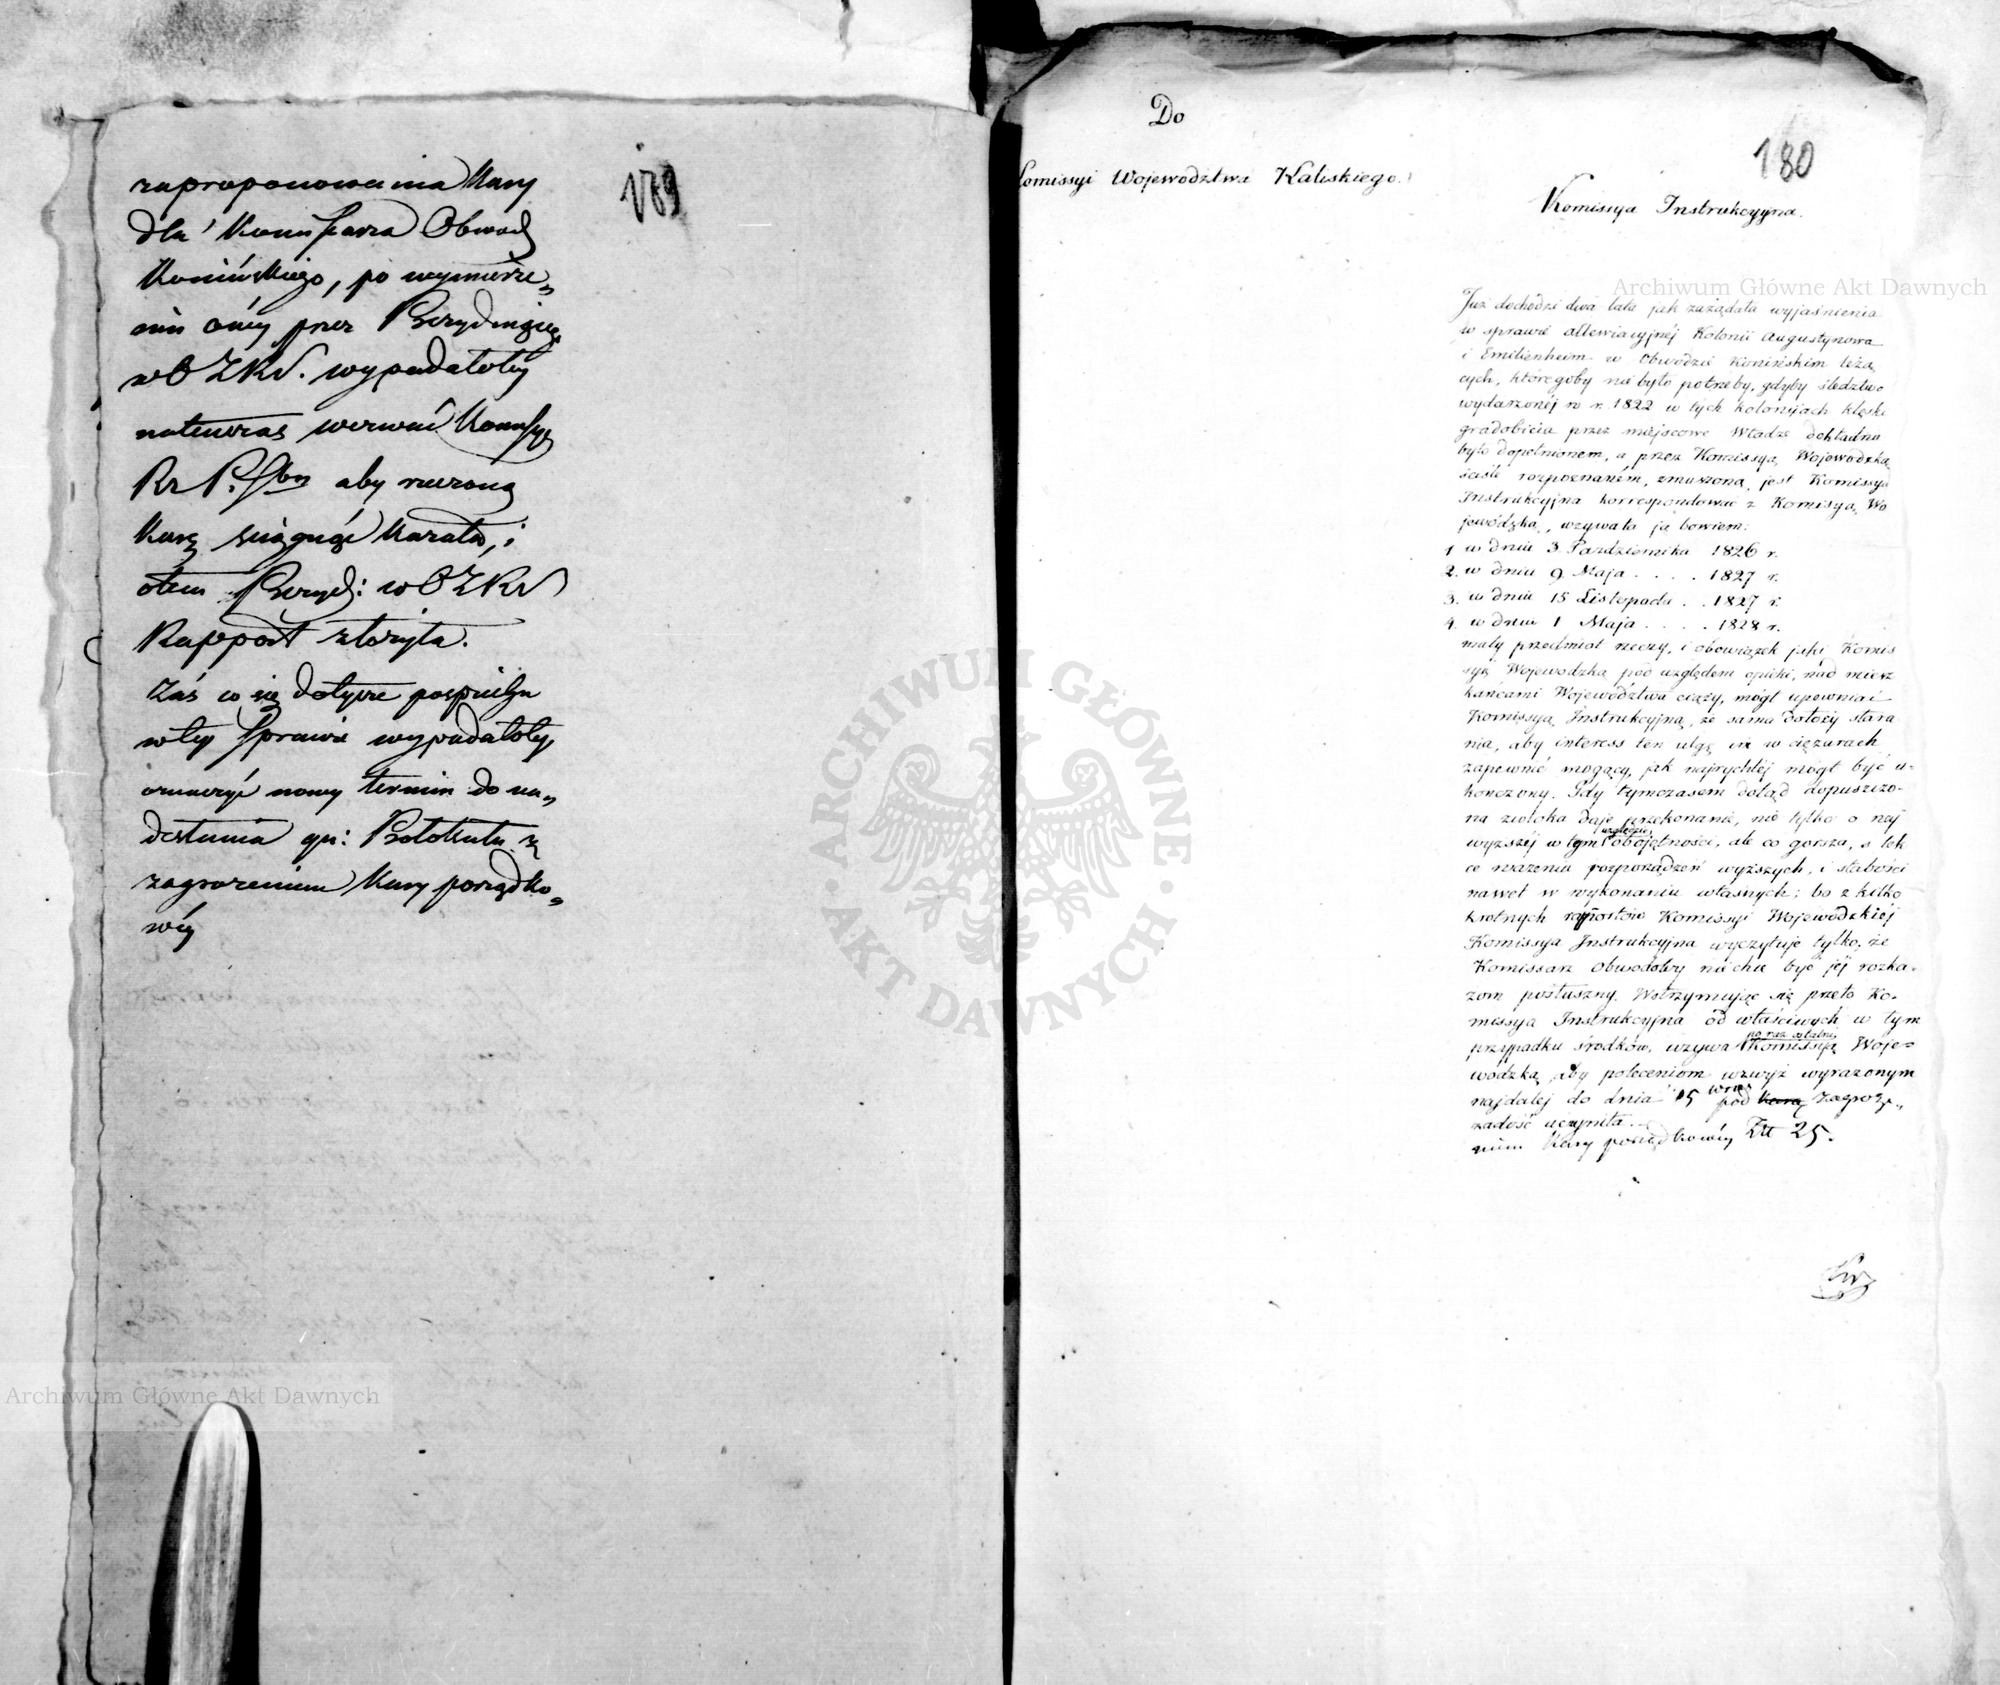 179
zaproponowania Kary
dla Kommissarza Obwodu
Konińskiego, po wymierze„
niu onéy przez Prezydującego
w O Z K W. wypadałoby
natenczas wezwać Kommissyą
Rz P. i Sbu aby rzeczoną
Karę ściągnąć Kazała, i
o tem Prezyd: w O Z K W
Rapport złożyła.
Zaś co się dotycze pospiechu
w tey Sprawie wypadałoby
oznaczyć nowy termin do na„
desłania Protokułu z
zagrożeniem Kary porządko„
wéy
180
Do
Komissyi Województwa Kaliskiego.
Komissya Instrukcyjna.
Już dochodzi dwa lata jak zażądała wyjaśnienia
w sprawie allewiacyjnéj Kolonii Augustynowa
i Emilienheim w Obwodzie Konińskim leżą
cych, któregoby nie było potrzeby, gdyby śledztwo
wydarzonéj w r. 1822 w tych kolonijach klęski
gradobicia przez miejscowe Władze dokładnie
było dopełnionem, a przez Komissyą Wojewódzką
ściśle rozpoznaném, zmuszoną jest Komissya
Instrukcyjna korrespondować z Komisyą Wo
jewódzką, wzywała ją bowiem:
1. w dniu 3. Pazdziernika 1826 r.
2. w dniu 9. Maja . . . . 1827 r.
3. w dniu 15 Listopada . . 1827 r.
4. w dniu 1 Maja . . . . 1828 r.
mały przedmiot rzeczy, i obowiązek jaki Komis
syą Wojewodzką pod względem opieki, nad miesz
kańcami Województwa ciąży, mógł upewniać
Komissyą Instrukcyjną, że sama dołoży stara
nia, aby interess ten ulgę im w ciężarach
zapewnić mogący, jak najrychléj mógł być u-
kończony. Gdy tymczasem dotąd dopuszczo-
na zwłoka daje przekonanie, nie tylko o naj
wyższéj w tym względzie obojętności, ale co gorsza, o lek
ce ważeniu rozporządzeń wyższych, i słabości
nawet w wykonaniu własnych; bo z kilko
krotnych raportów Komissyi Wojewódzkiej
Komissya Instrukcyjna wyczytuje tylko, że
Komissarz Obwodowy nie chce być jéj rozka-
zom posłuszny. Wstrzymując się przeto Ko-
missya Instrukcyjna od właściwych w tym
przypadku środków, wzywa po raz ostatni Komissyią Woje-
wódzką, aby poleceniom wzwyż wyrażonym
najdalej do dnia 15 wrze pod Karą zagroże„
zadość uczyniła.
niem Kary porządkowéy Złt 25.